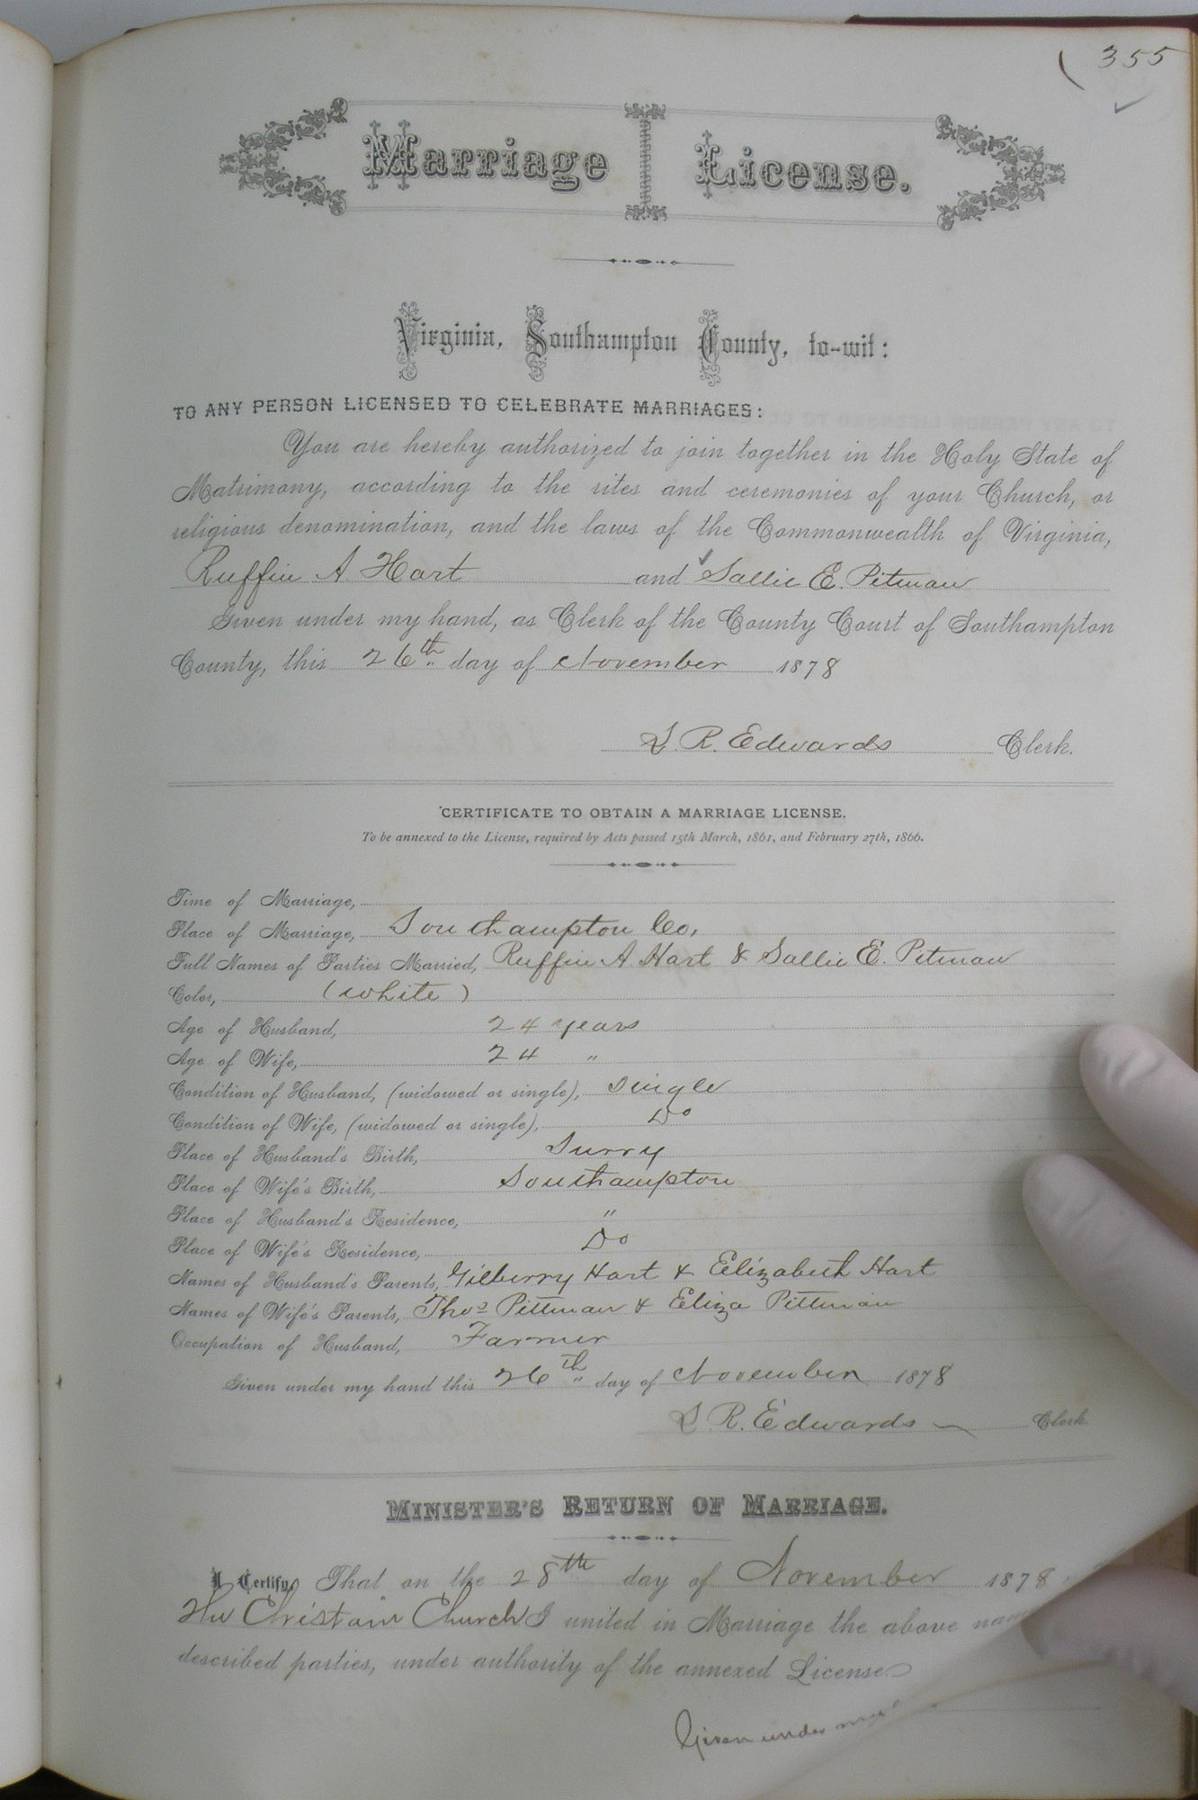 355
Marriage License.
Virginia, Southampton County, to-wit:
TO ANY PERSON LICENSED TO CELEBRATE MARRIAGES:
You are hereby authorized to join together in the Holy State of
Matrimony, according to the rites and ceremonies of your Church, or
religious denomination, and the laws of the Commonwealth of Virginia,
Ruffin A Hart and Sallie E. Pitman
Given under my hand, as Clerk of the County Court of Southampton
County, this 26th day of November 1878
L. R. Edwards Clerk.
CERTIFICATE TO OBTAIN A MARRIAGE LICENSE.
To be annexed to the License, required by Acts passed 15th March, 1861, and February 27th, 1866.
Time of Marriage,
Place of Marriage, Southampton Co,
Full Names of Parties Married, Ruffin A Hart & Sallie E. Pitman
Color, (white)
Age of Husband, 24 years
Age of Wife, 24 "
Condition of Husband, (widowed or single), single
Condition of Wife, (widowed or single), Do
Place of Husband's Birth, Surry
Place of Wife's Birth, Southampton
Place of Husband's Residence, "
Place of Wife's Residence, Do
Names of Husband's Parents, Gilberry Hart & Elizabeth Hart
Names of Wife's Parents, Thos Pittman & Eliza Pittman
Occupation of Husband, Farmer
Given under my hand this 26th day of November 1878
L. R. Edwards Clerk
MINISTER'S RETURN OF MARRIAGE.
I Certify, That on the 28th day of November 1878
Christain Church I united in Marriage the above
described parties, under authority of the annexed License
Given under my